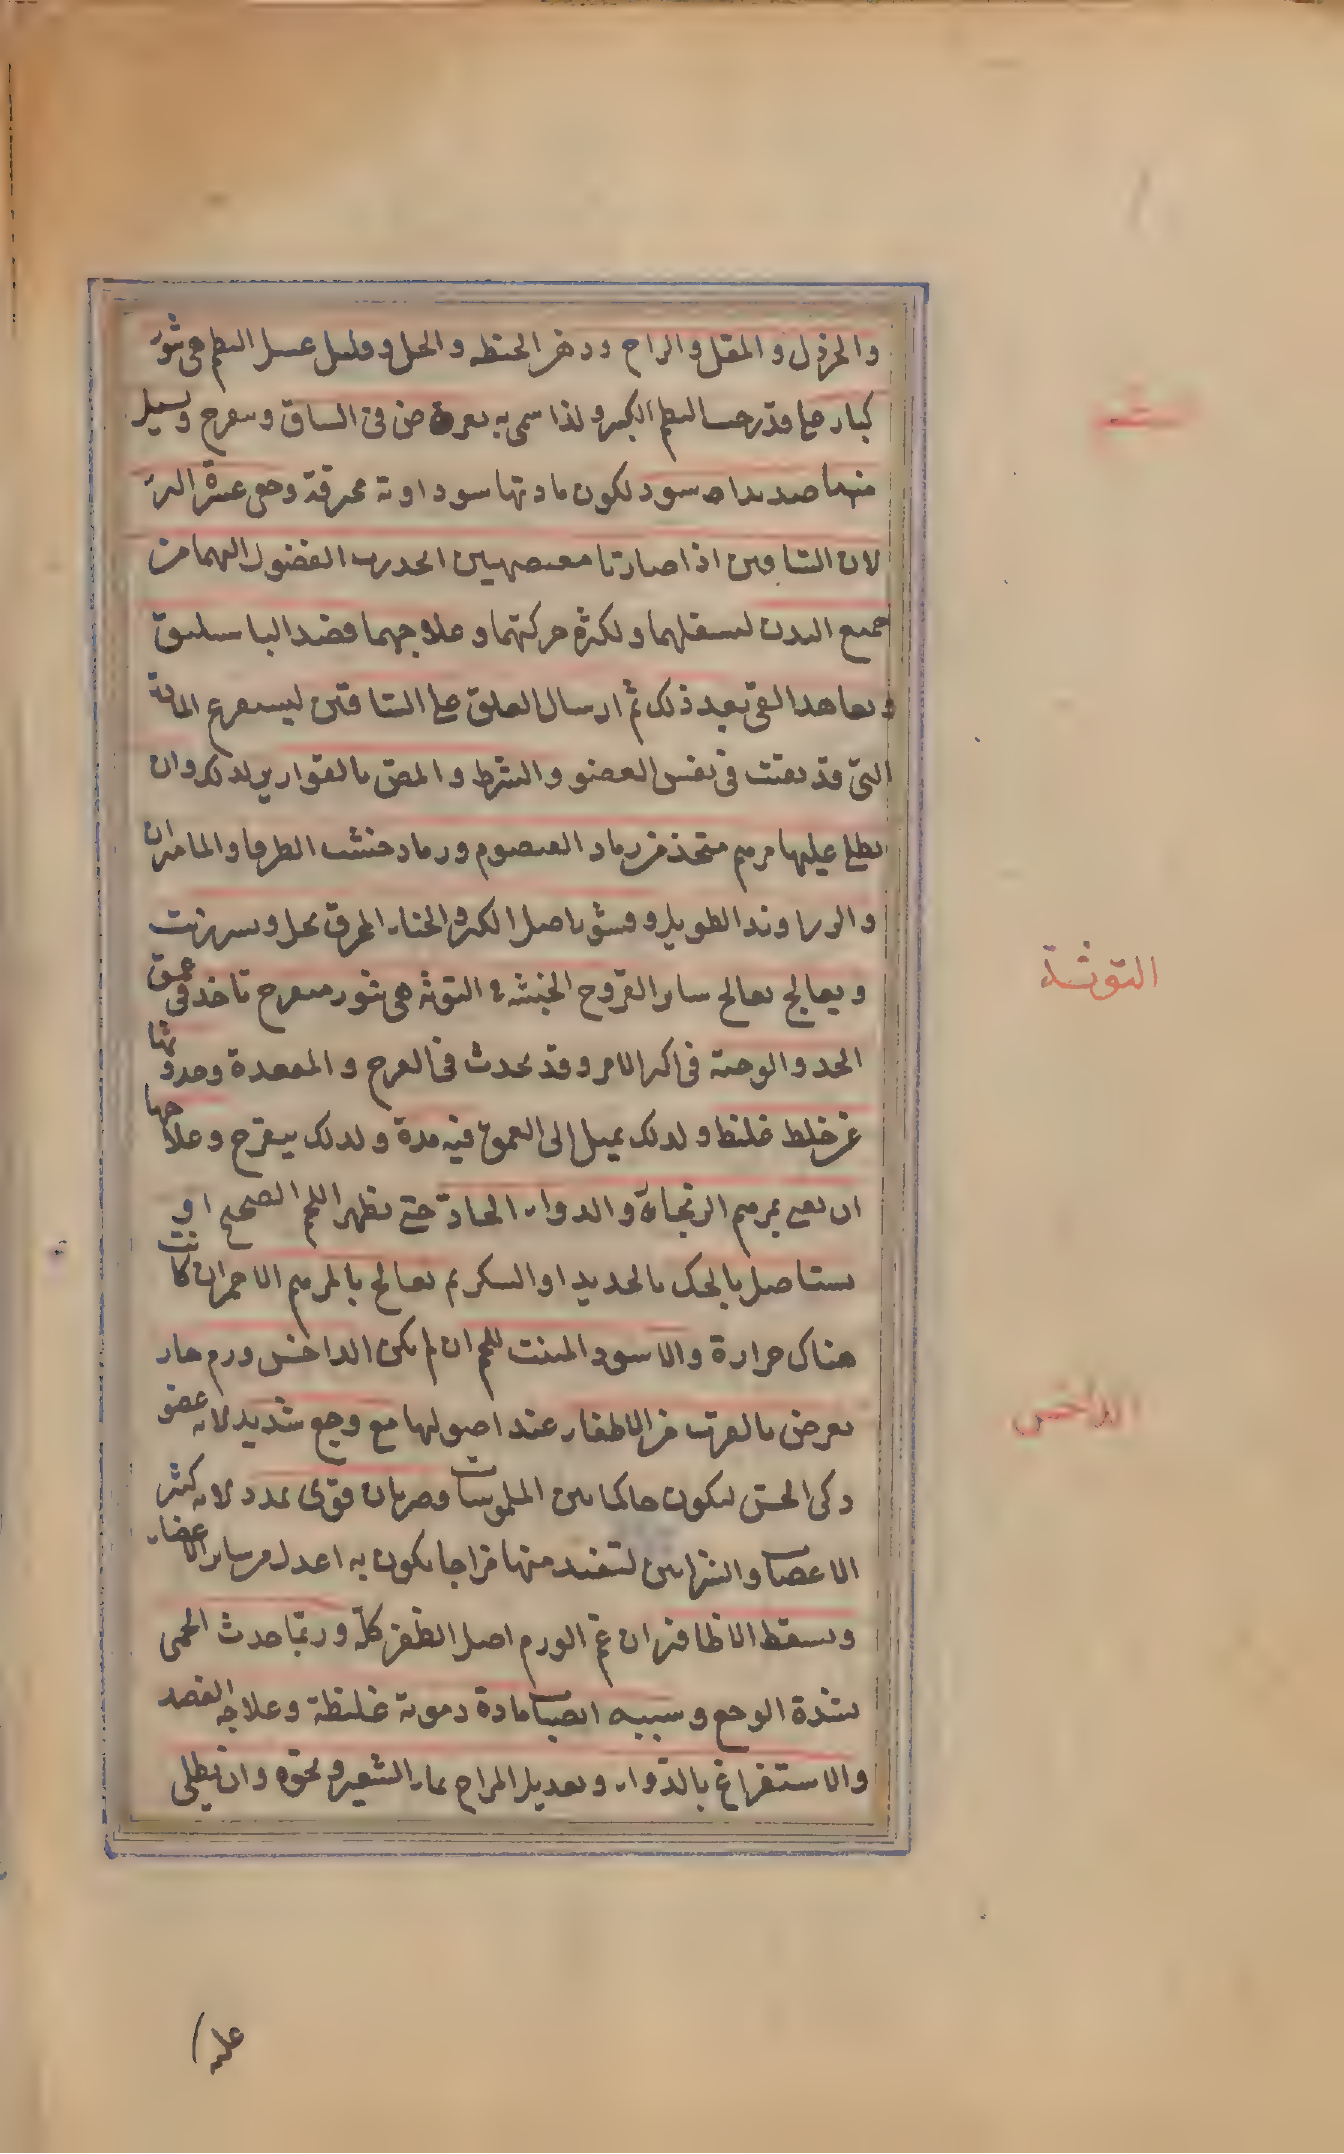 والخردل والمقل والزاج ودهن الحنطة والخل وقليل عسل البطم هى بثور
كبار على قدر حب البطم الكبير ولذا سمى به تعرض فى الساق وتتقرح ويسيل
منها صديد اسود لكون مادتها سوداوية محرقة وهى عسرة البرء
لان الساقين اذا صارتا انحدرت الفضول اليهما من
جميع البدن لتسفلهما ولكثرة حركتهما وعلاجهما فصد الباسليق
وتعاهد القئ بعد ذلك ثم ارسال العلق على الساقين ليستفرغ المادة
التى قد بقيت فى نفس العضو والشرط والمص بالقوارير لذلك وان
يطلى عليها مرهم متخذ من رماد القيصوم ورماد خشب الطرفا والماميران
والزراوند الطويل وقشور اصل الكبر والحناء المحرق بخل ويسير زيت
ويعالج بعالج ساير القروح الخبيثة التوثة هى بثور متقرح تاخذ فى عمق
الخد والوجنة فى اكثر الامر وقد يحدث فى الفرج والمقعدة وحدوثها
عن خلط غليظ ولذلك يميل الى العمق فيه مدة ولذلك يتقرح وعلاجها
ان يفنى بمرهم الزنجار والدواء الحاد حتى يظهر اللحم الصحيح او
يستاصل بالحك بالحديد او السكر ثم يعالج بالمرهم الاحمر ان كانت
هناك حرارة والاسود المنبت للحم ان لم يكن الداخس ورم حار
يعرض بالقرب من الاظفار عند اصولها مع وجع شديد لانه عضو
ذكى الحس ليكون حاكما بين الملموسات وضربان قوى تمدد لانه كثير
الاعصاب والشرايين لتفيد منها مزاجا يكون به اعدل من ساير الاعضاء
ويسقط الاظافير ان عم الورم اصل الظفر كله وربما حدث الحمى
لشدة الوجع وسببه انصباب مادة دموية غليظة وعلاجه الفصد
والاستفراغ بالدواء وتعديل المزاج بماء الشعير ونحوه وان يطلى
التوثة
الداخس
عليه